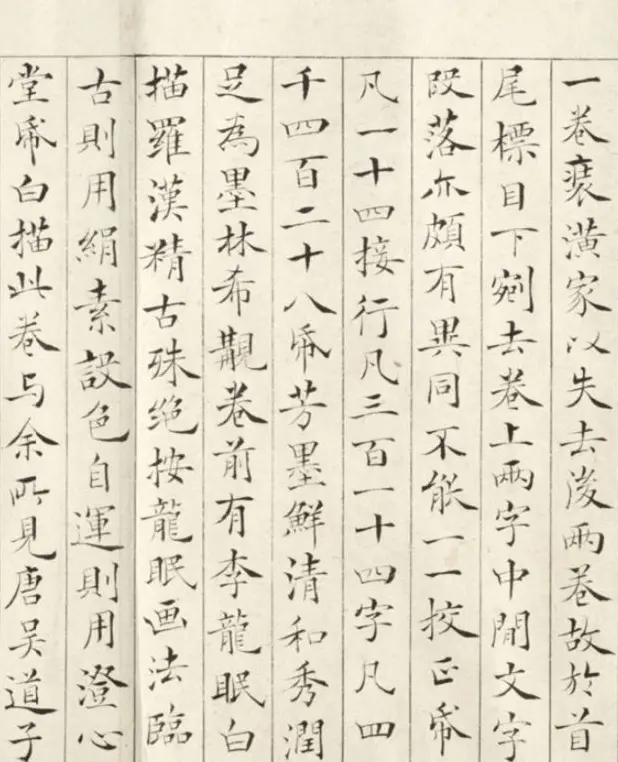 一卷裵潢家以失去後兩卷故於首
尾標目下剜去卷上兩字中間文字
段落尒頗有異同不能一一挍正帋
凡一十四接行凡三百一十四字凡四
千四百二十八帋芳墨鮮清和秀潤
足為墨林希覯卷前有李龍眠白
描羅漢精古殊绝按龍眠画法臨
古則用絹素設色自運則用澄心
堂帋白描此卷与余所見唐吴道子